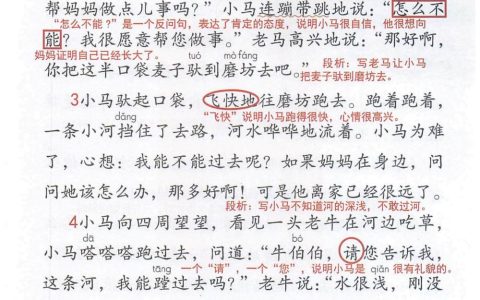 帮妈妈做点儿事吗？”小马连蹦带跳地说：“怎么不
“怎么不能？”是一个反问句，表达了肯定的态度，说明小马很自信，他很想向
能？我很愿意帮您做事。”老马高兴地说：“那好啊，
妈妈证明自己已经长大了。
tuó mò fáng
段析：写老马让小马
把麦子驮到磨坊去。
你把这半口袋麦子驮到磨坊去吧。”
3小马驮起口袋，飞快地往磨坊跑去。跑着跑着，
“飞快”说明小马跑得很快，心情很高兴。
dǎng
一条小河挡住了去路，河水哗哗地流着。小马为难
了，心想：我能不能过去呢？如果妈妈在身边，问
问她该怎么办，那多好啊！可是他离家已经很远了。
段析：写小马不知道河的深浅，不敢过河。
4小马向四周望望，看见一头老牛在河边吃草，
dā bó
小马嗒嗒嗒跑过去，问道：“牛伯伯，请您告诉我，
tāng qiǎn
一个“请”，一个“您”，说明小马是很有礼貌的。
这条河，我能蹚过去吗？”老牛说：“水很浅，刚没